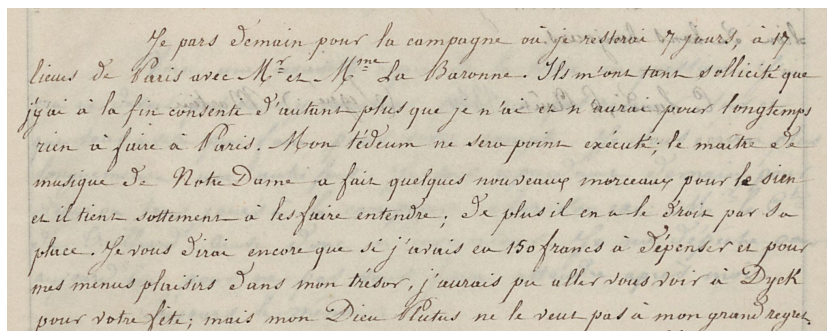 Je pars démain pour la campagne où je resterai 7 jours, à 17
lieues de Paris avec Mr et Mme La Baronne. Ils m'ont tant sollicité que
j'y ai à la fin consenti d'autant plus que je n'ai et n'aurai pour longtemps
rien à faire à Paris. Mon tédeum ne sera point exécuté; le maître de
musique de Notre Dame a fait quelques nouveaux morceaux pour le sien
et il tient sottement à les faire entendre; de plus il en a le droit par sa
place. Je vous dirai encore que si j'avais eu 150 francs à dépenser et pour
mes menus plaisirs dans mon trésor, j'aurais pu aller vous voir à Dyck
pour votre fête; mais mon Dieu Plutus ne le veut pas à mon grand regret.